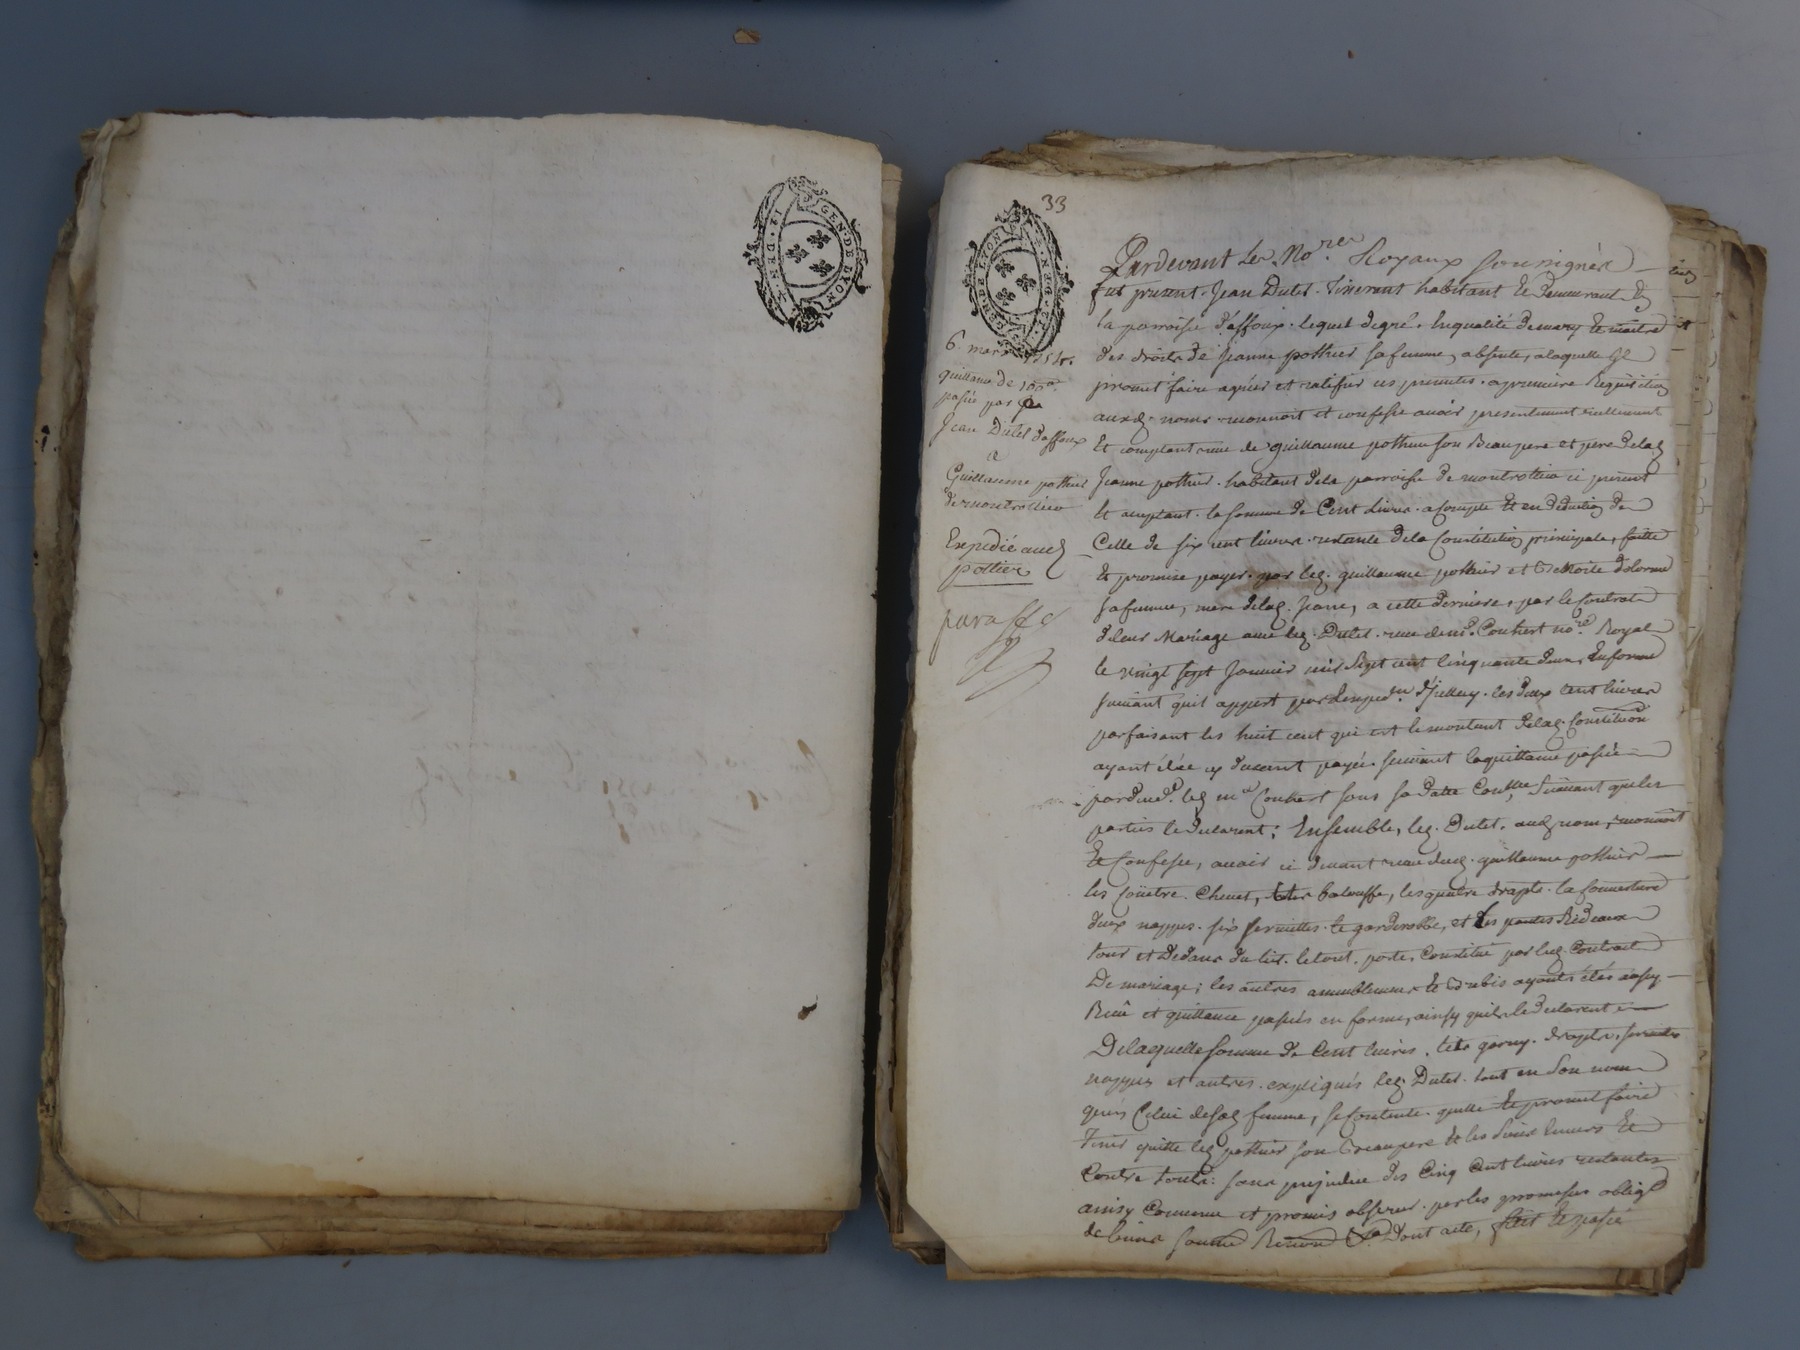 33
6. mars 1754.
quittance de 100#
passée par
Jean Dulet d'affoux
a
Guillaume pothier
de montrottier
Expedié aud.
pottier
paraffé
Pardevant Les No.res Royaux soussignés
fut present. Jean Dulet. Tisserant habitant Et Demeurant En
la parroisse d'affoux. lequel degré. Enqualité demary Et maitre
des droits de Jeanne pothier safemme, absente, alaquelle Il
promet faire agréer et ratiffier ces presentes. apremiere Requisition
auxd. noms reconnoit et confesse avoir presentement reellement
Et comptant receu de guillaume pothier son Beaupere et pere delad.
Jeanne pothier. habitant dela parroisse de montrottier ici present
Et acceptant. la somme de Cent Livres. acompte Et en Déduction de
Celle de six cent livres restante dela Constitution principale, faitte
Et promise payer. par led. guillaume pothier et delorme
safemme, mere delad. Jeanne, a cette derniere, par le Contrat
deleur Mariage avec led. Dulet. receu de me. Couhert no.re Royal
le vingt sept Janvier mil sept cent Cinquante deux, Enforme
suivant quil appert par les deux Cent livres
parfaisant les huit cent qui est lemontant delad. Constitution
ayant été cy devant payée. suivant laquittance passée
pardevt. led. me Couhert sous sa datte suivant queles
parties le declarent; Ensemble, led. Dulet. aud. nom, reconnoit
Et Confesse, avoir ci devant receu dud. guillaume pothier
les Coüetre. Chevet, balouffe, lesquatre draps. la Couverture
deux nappes. six serviettes. le garderobbe, et les pantes Rideaux
tour et Dedans du lit. letout. porté, Constitué par led. Contrat
De mariage; les autres ameublements Et ayants étés aussy
Receu et quittance passés en forme, ainsy quils le declarent
Delaquelle somme de Cent livres. garny. draps. serviettes
nappes et autres. expliqués led. Dulet. tout en Son nom
qu'en Celui desad. femme, se Contente. quitte Et promet faire
Tenir quitte led. pothier son Beaupere Et les Siens Envers Et
Contre touts: sans prejudice des Cinq Cent livres restantes
ainsy Convenu et promis observer. parles promesses obligé
de biens Renon &a. Dont acte, fait Et passé